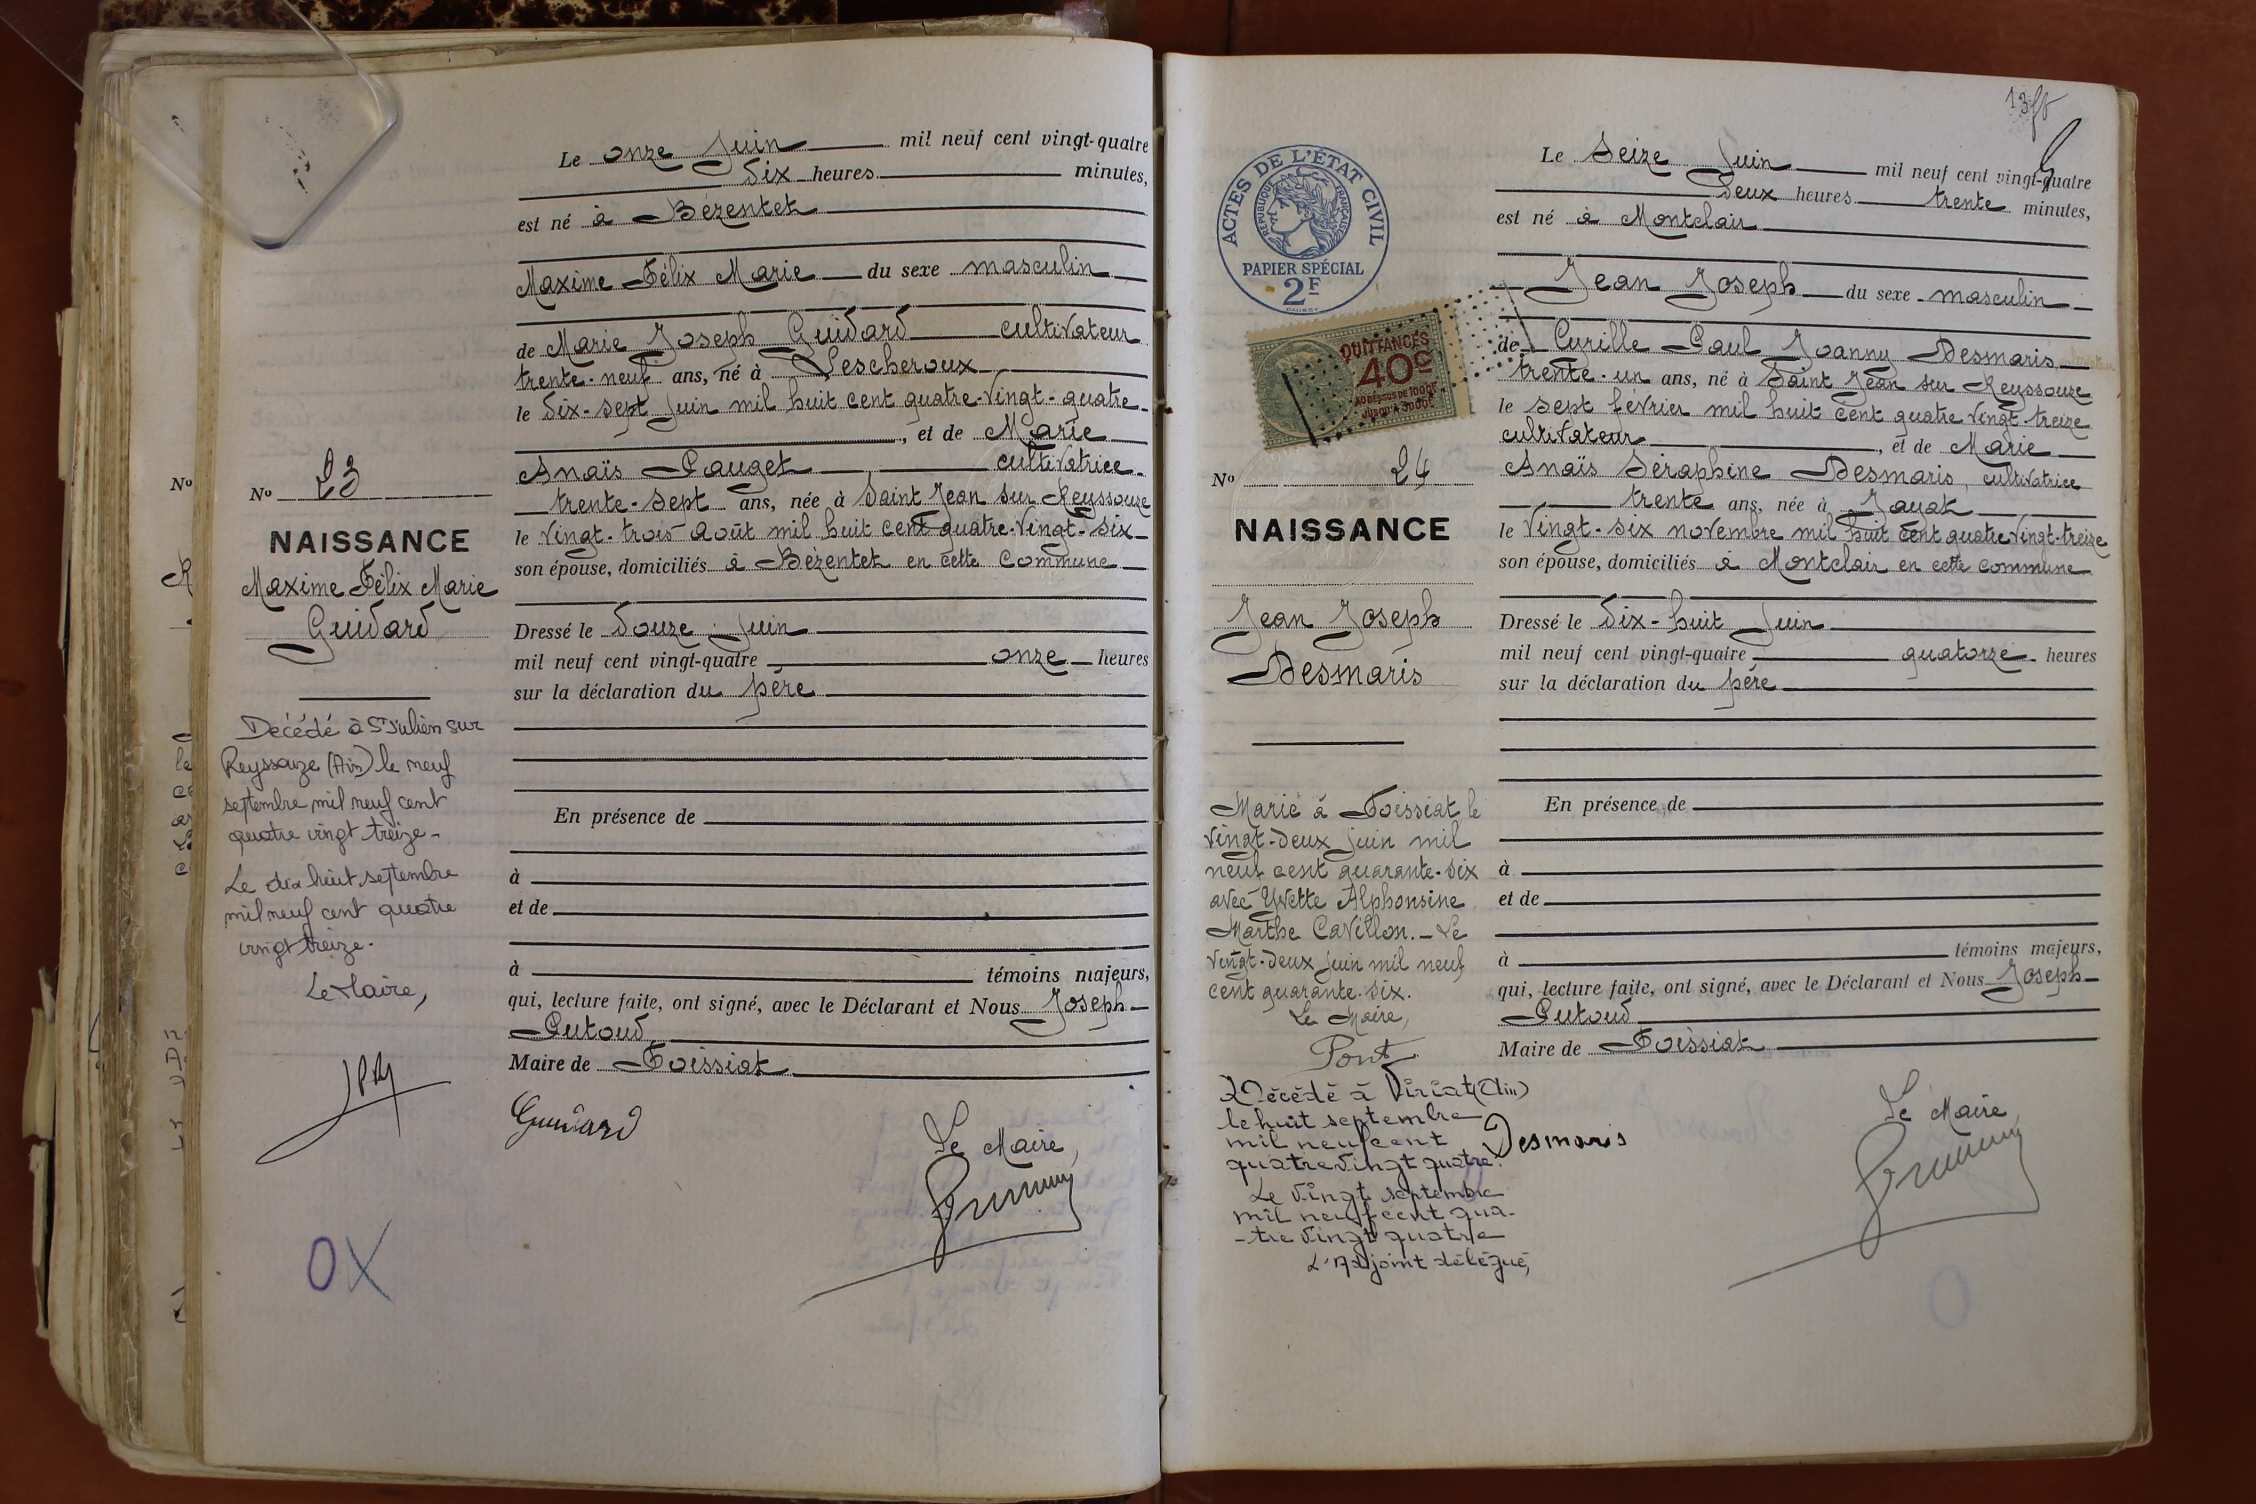 Le onze Juin mil neuf cent vingt-quatre
dix heures minutes,
est né à Bézentet
Maxime Félix Marie du sexe masculin
de Marie Joseph Guidard cultivateur
trente-neuf ans, né à Lescheroux
le dix-sept Juin mil huit cent quatre-vingt-quatre
, et de Marie
Anaïs Pauget cultivatrice
trente-sept ans, née à Saint Jean sur Reyssouze
le vingt-trois août mil huit cent quatre-vingt-six
son épouse, domiciliés à Bézentet en cette commune
Dressé le douze Juin
mil neuf cent vingt-quatre onze heures
sur la déclaration du père
En présence de
à
et de
à témoins majeurs,
qui, lecture faite, ont signé, avec le Déclarant et Nous Joseph
Putoud
Maire de Foissiat
Guidard
Le Maire,
No
No 23
NAISSANCE
Maxime Félix Marie
Guidard
Décédé à St Julien sur
Reyssouze (Ain) le neuf
septembre mil neuf cent
quatre vingt treize-
Le dix huit septembre
mil neuf cent quatre
vingt treize.
Le Maire,
OX
13
ACTES DE L'ÉTAT CIVIL
REPUBLIQUE FRANÇAISE
PAPIER SPÉCIAL
2F
QUITTANCES
40c
AU DESSUS DE 1000F
JUSQU'A 3000F
No 24
NAISSANCE
Jean Joseph
Desmaris
Marié à Foissiat le
vingt-deux juin mil
neuf cent quarante-six
avec Yvette Alphonsine
Marthe Cavillon.- Le
vingt-deux juin mil neuf
cent quarante-six.
Le Maire,
Pont
Décédé à Viriat (Ain)
le huit septembre
mil neuf cent
quatre vingt quatre.
Le vingt septembre
mil neuf cent qua-
-tre vingt quatre
L'Adjoint délégué,
Le Seize Juin mil neuf cent vingt-quatre
deux heures trente minutes,
est né à Montclair
Jean Joseph du sexe masculin
de Cyrille Paul Joanny Desmaris
trente-un ans, né à Saint Jean sur Reyssouze
le sept février mil huit cent quatre vingt treize
cultivateur , et de Marie
Anaïs Séraphine Desmaris, cultivatrice
trente ans, née à Jayat
le vingt-six novembre mil huit cent quatre vingt-treize
son épouse, domiciliés à Montclair en cette commune
Dressé le dix-huit Juin
mil neuf cent vingt-quatre quatorze heures
sur la déclaration du père
En présence de
à
et de
à témoins majeurs,
qui, lecture faite, ont signé, avec le Déclarant et Nous Joseph
Putoud
Maire de Foissiat
Desmaris
Le Maire
O